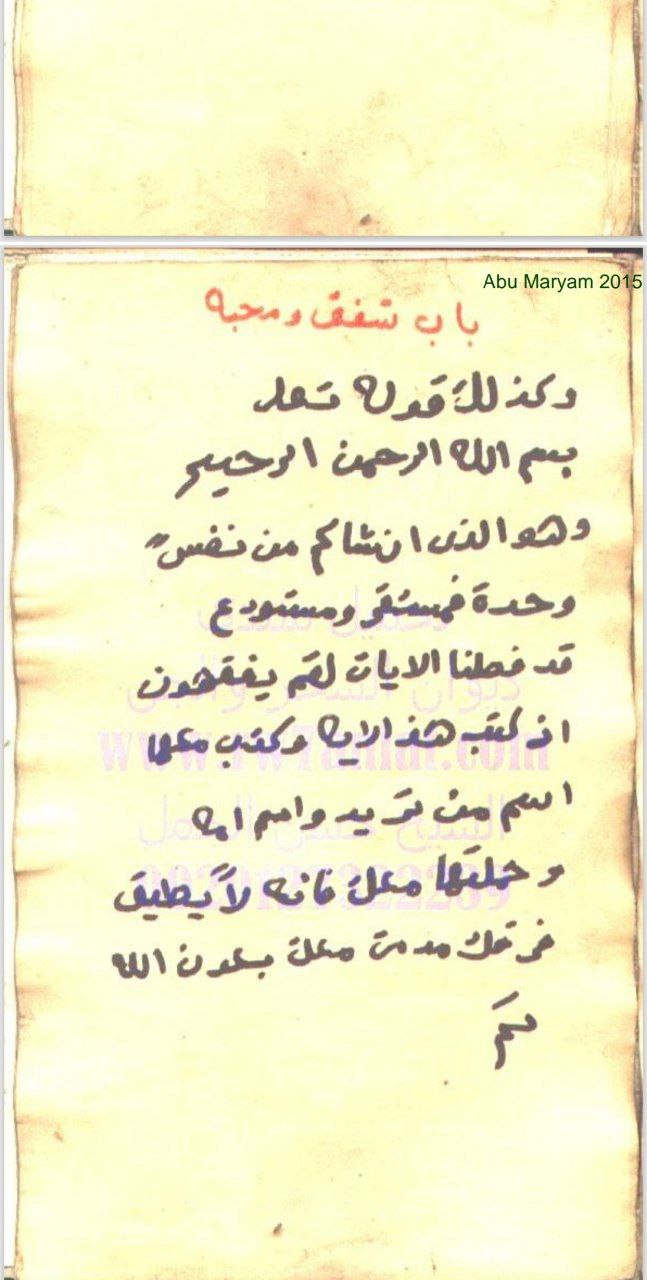 Abu Maryam 2015
باب شفق ومحبه
وكذلك قوله تعلى
بسم الله الرحمن الرحيم
وهو الذى انشاكم من نفسٍ
وحدة فمستقر ومستودع
قد فصلنا الايات لقم يفقهون
اذ كتب هذ الايه وكتب معها
اسم من تريد واسم امه
وحملتها معك فانه لا يطيق
فرقك مدمت معك بعون الله
www.
.com